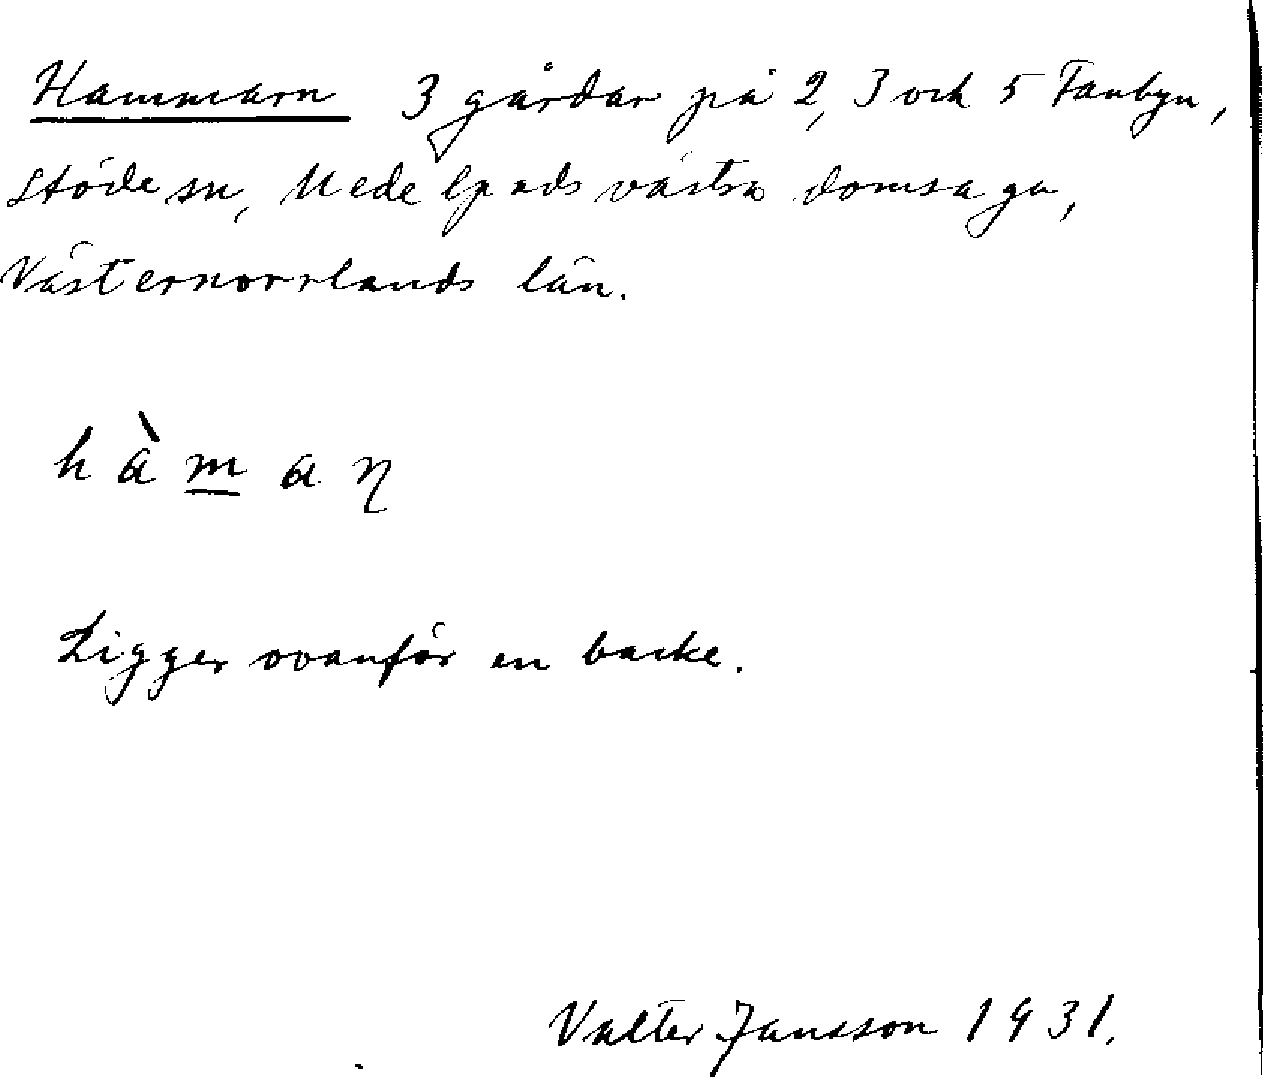 Hammarn 3 gårdar på 2, 3 och 5 Fanbyn,
Stöde sn, Medelpads västra domsaga,
Västernorrlands län.
hàmaɳ
Ligger ovanför en backe.
Valter Jansson 1931.